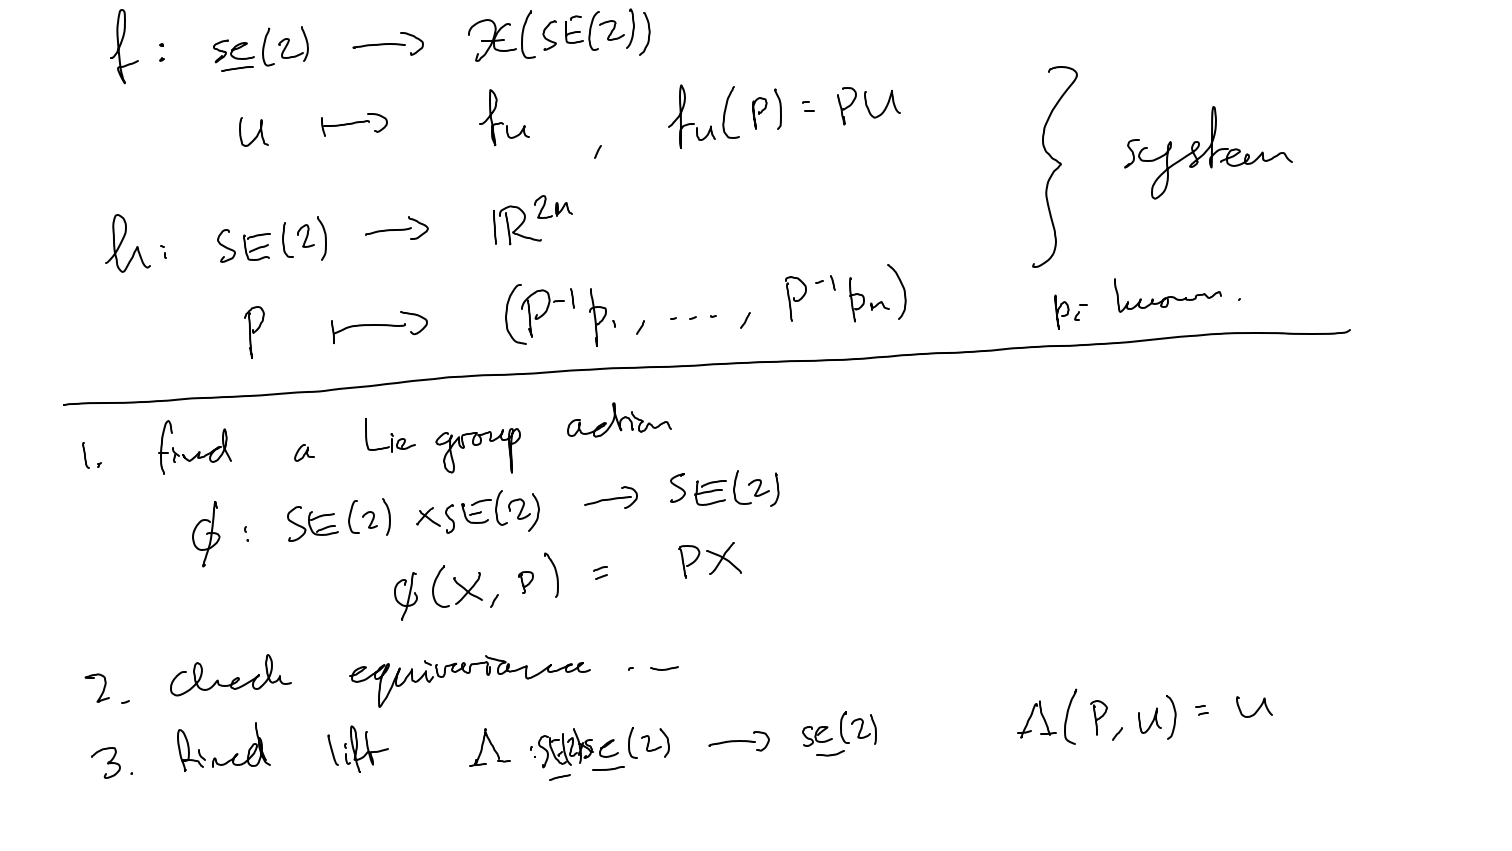 f : se(2) → 𝔛(SE(2))
u ↦ fu , fu(P) = PU
h: SE(2) → ℝ²ⁿ
P ↦ (P⁻¹p₁, ..., P⁻¹pₙ)
} system
pi known.
1. find a Lie group action
ϕ : SE(2) × SE(2) → SE(2)
ϕ(X, P) = PX
2. check equivariance ...
3. find lift Λ : SE(2)×se(2) → se(2) Λ(P, U) = U